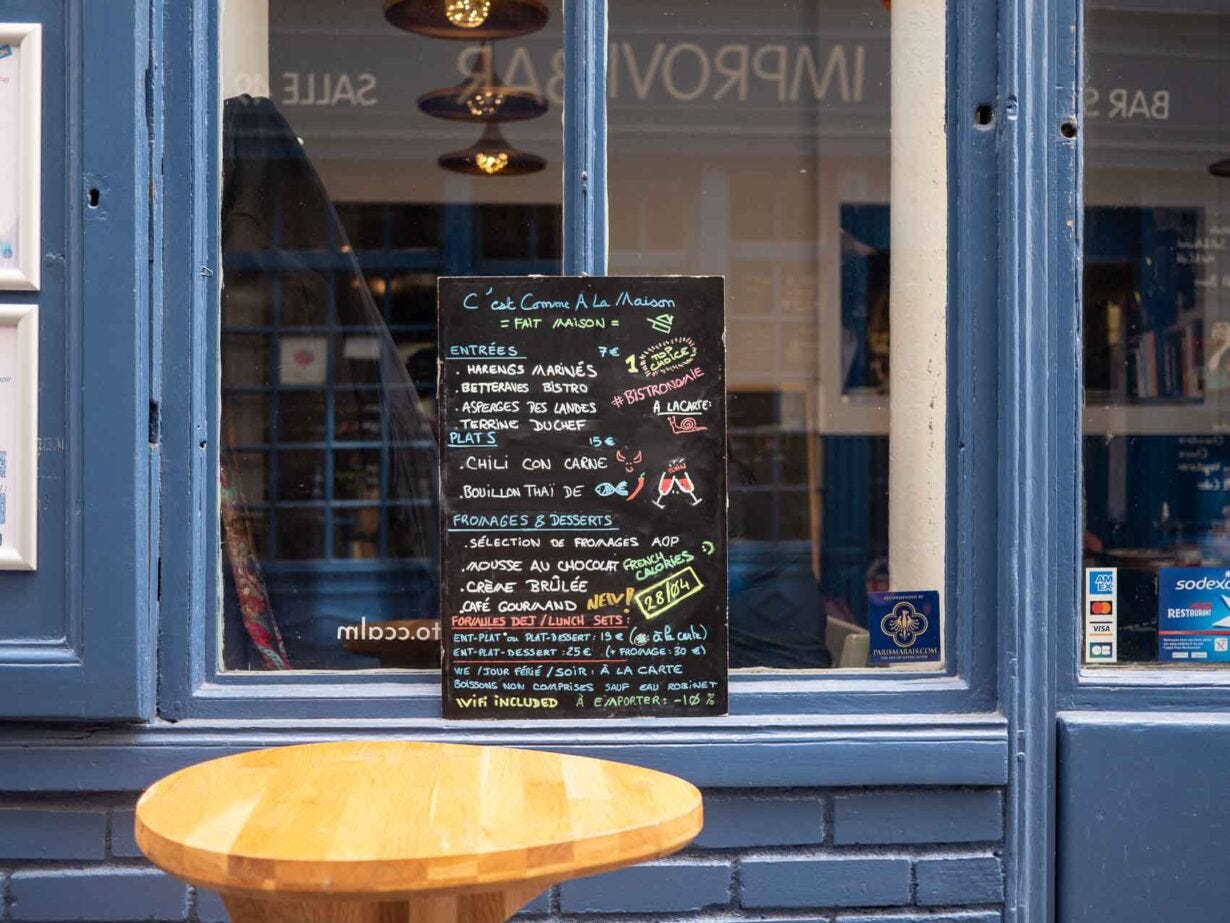 SALLE
IMPROVI BAR
BAR S
C'est Comme À La Maison
= FAIT MAISON =
ENTRÉES 7€
1 TOP CHOICE
. HARENGS MARINÉS
. BETTERAVES BISTRO
#BISTRONOMIE
. ASPERGES DES LANDES
À LA CARTE:
. TERRINE DU CHEF
PLATS 15€
. CHILI CON CARNE
. BOUILLON THAÏ DE
FROMAGES & DESSERTS
. SÉLECTION DE FROMAGES AOP
. MOUSSE AU CHOCOLAT
FRENCH CALORIES :)
. CRÈME BRÛLÉE
. CAFÉ GOURMAND NEW!
28/04
FORMULES DEJ / LUNCH SETS:
ENT-PLAT* ou PLAT-DESSERT: 19€ ( : à la carte)
ENT-PLAT-DESSERT: 25€ (+ FROMAGE: 30€)
WE / JOUR FÉRIÉ / SOIR: À LA CARTE
BOISSONS NON COMPRISES SAUF EAU ROBINET
WIFI INCLUDED À EMPORTER: -10%
to.ccalm
RECOMMENDED BY
PARISMARAIS.COM
AM EX
VISA
sodexo
RESTAURANT